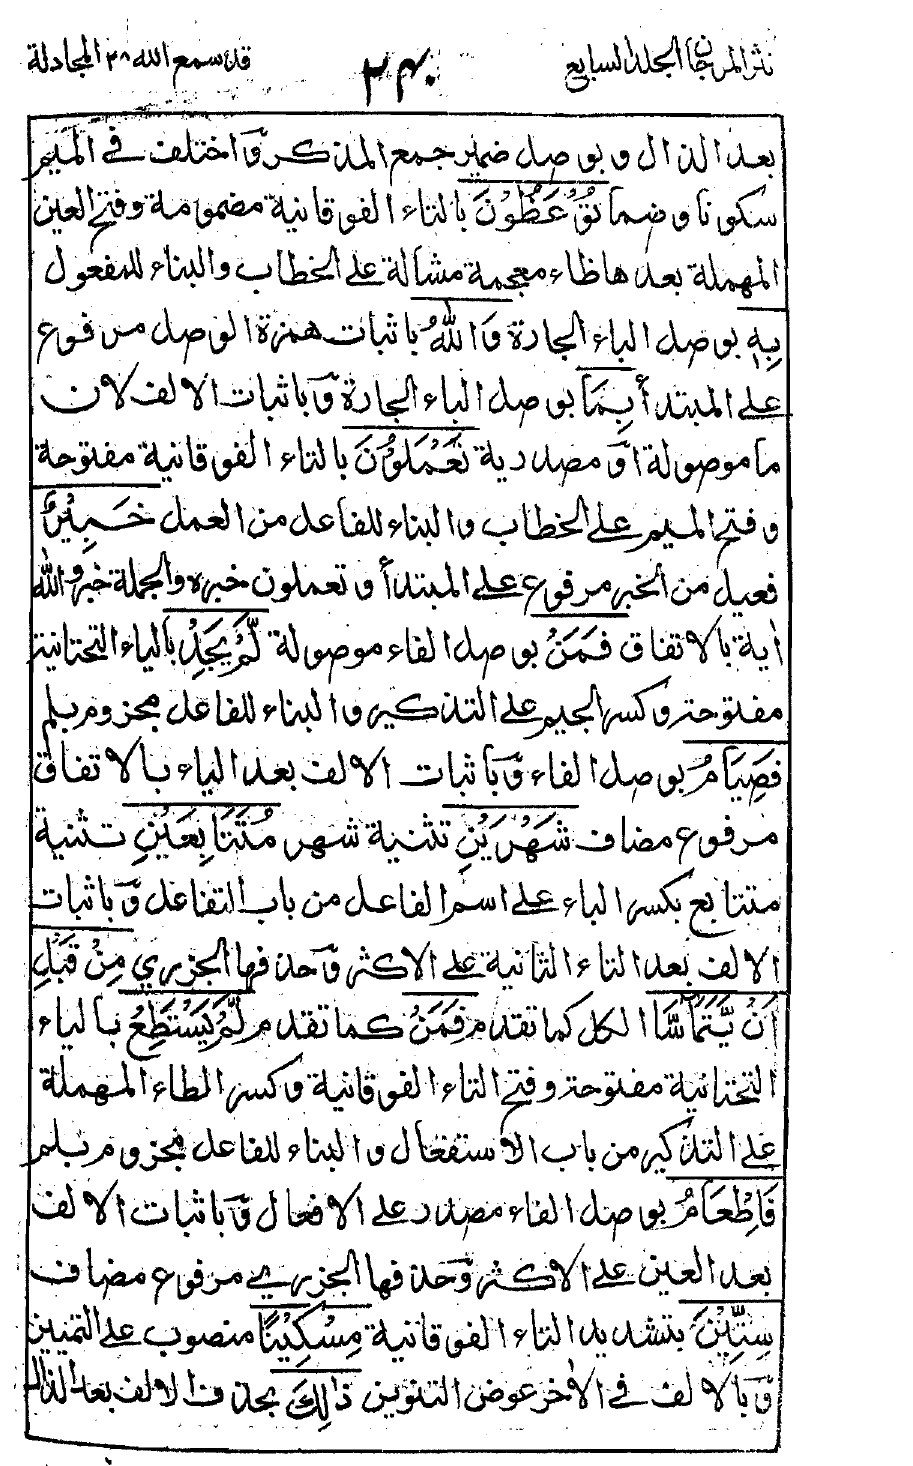 نثر المرجان المجلد السابع
٢٤٠
قد سمع الله ٢٨ المجادلة
بعد الذال وبوصل ضمير جمع المذكر وّاختلف فى الميم
سكونا وضما تُوْعَظُوْنَ بالتاء الفوقانية مضمومة وفتح العين
المهملة بعدها ظاء معجمة مشالة على الخطاب والبناء للمفعول
بِهٖ بوصل الباء الجارة وَاللهُ باثبات همزة الوصل مرفوع
على المبتدأ بِمَا بوصل الباء الجارة وّباثبات الالف لان
ما موصولة اوّ مصدرية تَعْمَلُوْنَ بالتاء الفوقانية مفتوحة
وفتح الميم على الخطاب والبناء للفاعل من العمل خَبِيْرٌ
فعيل من الخبر مرفوع على المبتدأ وتعملون خبره والجملة خبر والله
اية بالاتفاق فَمَنْ بوصل الفاء موصولة لَّمْ يَجِدْ بالياء التحتانية
مفتوحة وكسر الجيم على التذكير والبناء للفاعل مجزوم بلم
فَصِيَامُ بوصل الفاء وّباثبات الالف بعد الياء بالاتفاق
مرفوع مضاف شَهْرَيْنِ تثنية شهر مُتَتَابِعَيْنِ تثنية
متتابع بكسر الباء على اسم الفاعل من باب التفاعل وّباثبات
الالف بعد التاء الثانية على الاكثر وّحذفها الجزري مِنْ قَبْلِ
اَنْ يَّتَمَاۤسَّا الكل كما تقدم فَمَنْ كما تقدم لَّمْ يَسْتَطِعْ بالياء
التحتانية مفتوحة وفتح التاء الفوقانية وكسر الطاء المهملة
على التذكير من باب الاستفعال والبناء للفاعل مجزوم بلم
فَاِطْعَامُ بوصل الفاء مصدر على الافعال وّباثبات الالف
بعد العين على الاكثر وّحذفها الجزري مرفوع مضاف
سِتِّيْنَ بتشديد التاء الفوقانية مِسْكِيْنًا منصوب على التمييز
وّبالالف فى الاٰخر عوض التنوين ذٰلِكَ بحذف الالف بعد الذال